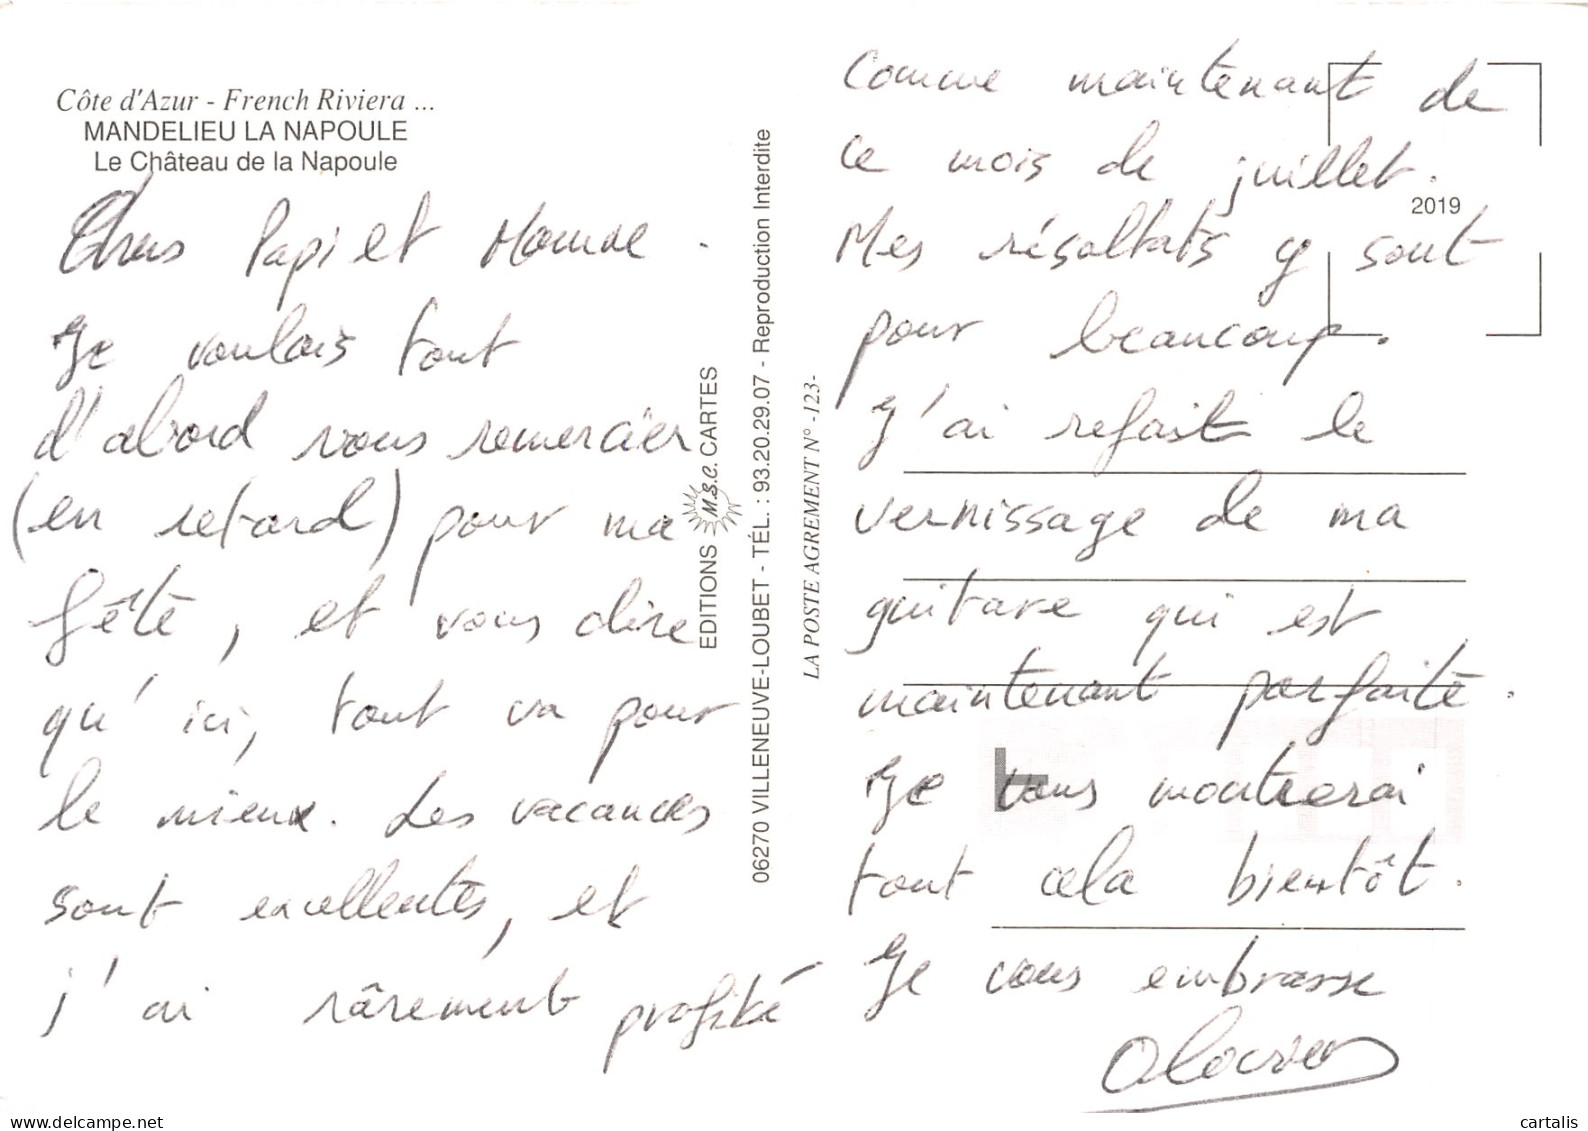 Côte d'Azur - French Riviera ...
MANDELIEU LA NAPOULE
Le Château de la Napoule
Chers Papi et Mamie.
Je voulais tout
d'abord vous remercier
(en retard) pour ma
fête, et vous dire
qu'ici, tout va pour
le mieux. Les vacances
sont excellentes, et
j'ai rârement profité
EDITIONS M.S.C. CARTES
06270 VILLENEUVE-LOUBET - TÉL. : 93.20.29.07 - Reproduction Interdite
LA POSTE AGREMENT N° -123-
Comme maintenant de
ce mois de juillet.
2019
Mes résultats y sont
pour beaucoup.
J'ai refait le
vernissage de ma
guitare qui est
maintenant parfaite.
Je vous montrerai
tout cela bientôt.
Je vous embrasse
cartalis